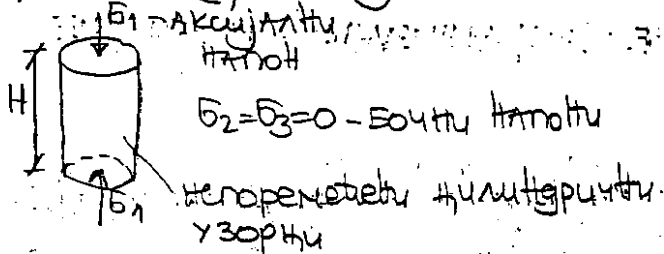 σ1 - АКСИЈАЛНИ
НАПОН
H
σ2=σ3=0 - БОЧНИ НАПОНИ
σ1
НЕПОРЕМЕЋЕНИ ЦИЛИНДРИЧНИ
УЗОРЦИ